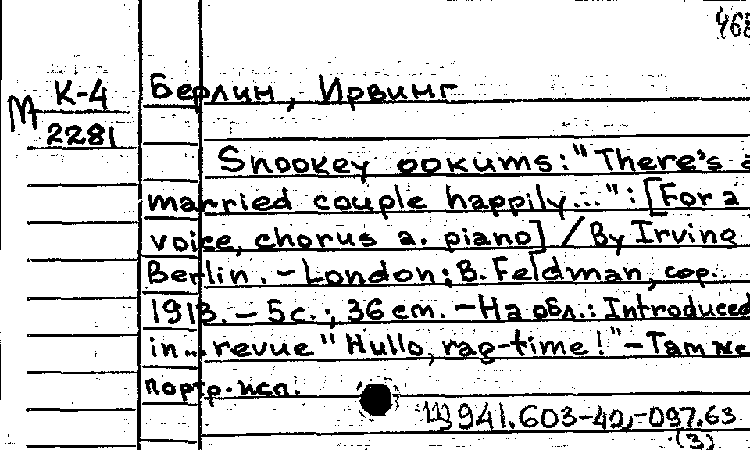 468
М К-4
2281
Берлин, Ирвинг
Snookey ookums: "There's a
married couple happily...": [For a
voice, chorus a. piano] / By Irving
Berlin. - London: B. Feldman, cop.
1913. - 5 с.; 36 см. - На обл.: Introduced
in... revue "Hullo, rag-time!" - Там же
портр. исп.
941.603-40,-097.63
(3)